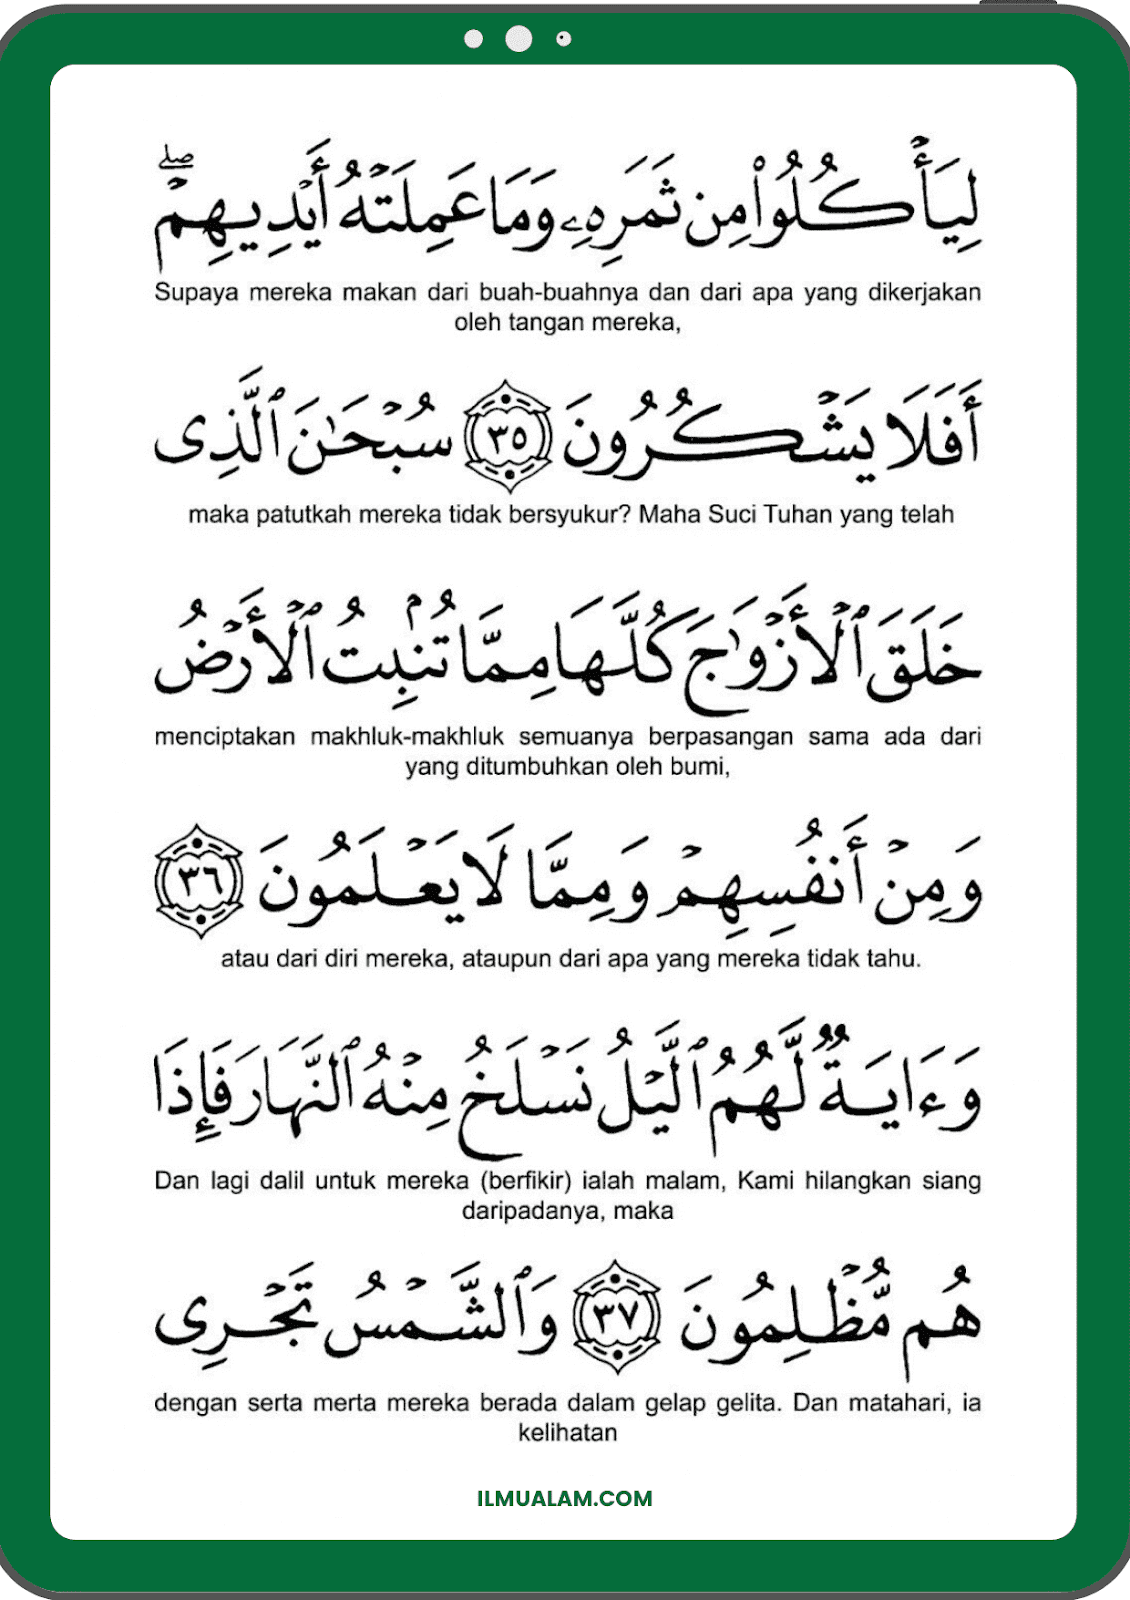 لِيَأۡكُلُواْ مِن ثَمَرِهِۦ وَمَا عَمِلَتۡهُ أَيۡدِيهِمۡۖ
Supaya mereka makan dari buah-buahnya dan dari apa yang dikerjakan
oleh tangan mereka,
أَفَلَا يَشۡكُرُونَ ٣٥ سُبۡحَٰنَ ٱلَّذِى
maka patutkah mereka tidak bersyukur? Maha Suci Tuhan yang telah
خَلَقَ ٱلۡأَزۡوَٰجَ كُلَّهَا مِمَّا تُنۢبِتُ ٱلۡأَرۡضُ
menciptakan makhluk-makhluk semuanya berpasangan sama ada dari
yang ditumbuhkan oleh bumi,
وَمِنۡ أَنفُسِهِمۡ وَمِمَّا لَا يَعۡلَمُونَ ٣٦
atau dari diri mereka, ataupun dari apa yang mereka tidak tahu.
وَءَايَةٌ لَّهُمُ ٱلَّيۡلُ نَسۡلَخُ مِنۡهُ ٱلنَّهَارَ فَإِذَا
Dan lagi dalil untuk mereka (berfikir) ialah malam, Kami hilangkan siang
daripadanya, maka
هُم مُّظۡلِمُونَ ٣٧ وَٱلشَّمۡسُ تَجۡرِى
dengan serta merta mereka berada dalam gelap gelita. Dan matahari, ia
kelihatan
ILMUALAM.COM